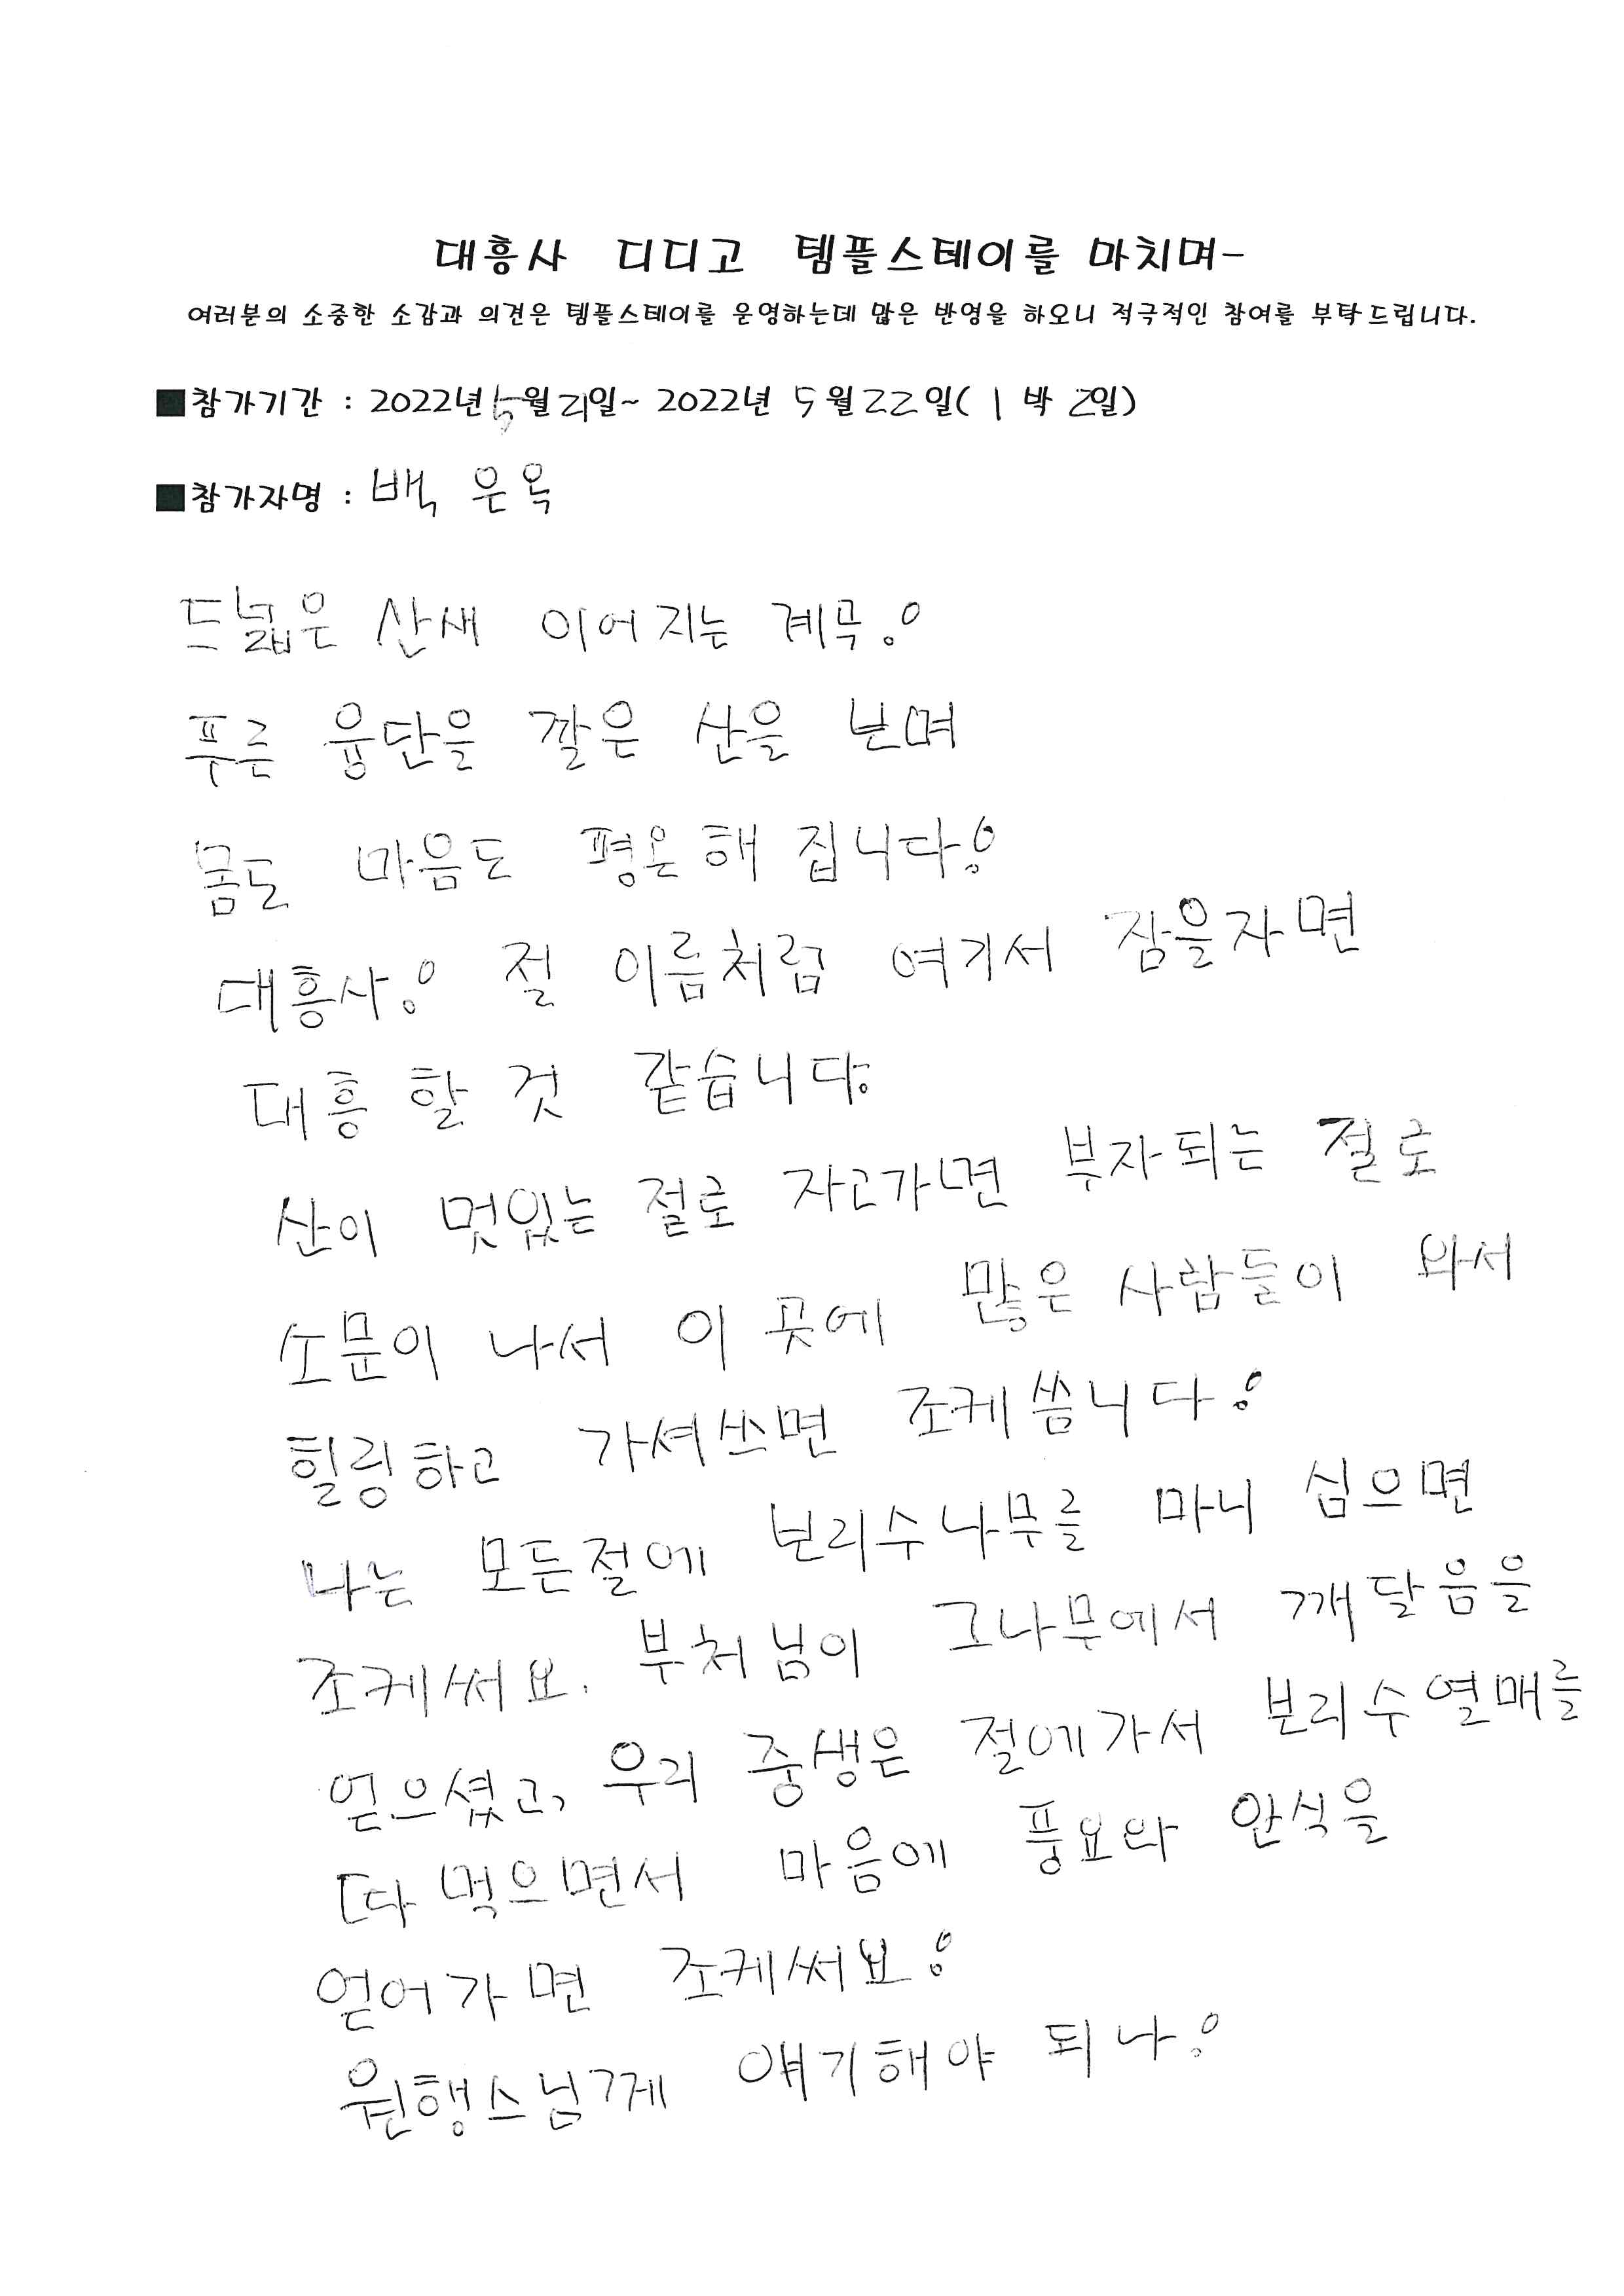 대흥사 디디고 템플스테이를 마치며-
여러분의 소중한 소감과 의견은 템플스테이를 운영하는데 많은 반영을 하오니 적극적인 참여를 부탁드립니다.
■참가기간 : 2022년 5월 21일~ 2022년 5월 22일( 1 박 2일)
■참가자명 : 백 은옥
드넓은 산새 이어지는 계곡!
푸른 융단을 깔은 산을 보며
몸도 마음도 평온해 집니다!
대흥사! 절 이름처럼 여기서 잠을자면
대흥 할 것 같습니다.
산이 멋있는 절로 자고가면 부자되는 절로
소문이 나서 이 곳에 많은 사람들이 와서
힐링하고 가셔쓰면 조케씀니다!
나는 모든절에 보리수나무를 마니 심으면
조케써요. 부처님이 그나무에서 깨달음을
얻으셨고, 우리 중생은 절에가서 보리수열매를
따먹으면서 마음에 풍요와 안식을
얻어가면 조케써요!
원행스님께 얘기해야 되나!